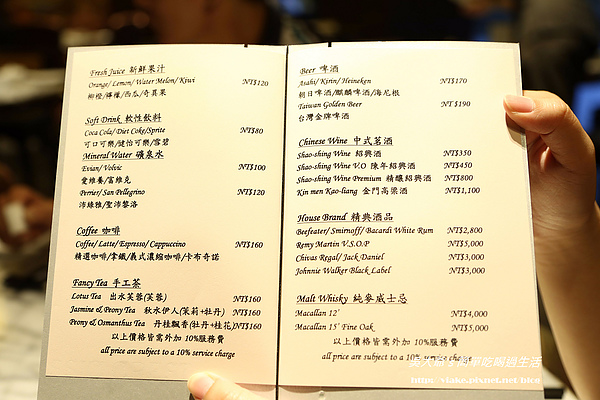 Fresh Juice 新鮮果汁
Orange/ Lemon/ Water Melon/ Kiwi NT$120
柳橙/檸檬/西瓜/奇異果
Soft Drink 軟性飲料
Coca Cola/ Diet Coke/Sprite NT$80
可口可樂/健怡可樂/雪碧
Mineral Water 礦泉水
Evian/ Volvic NT$100
愛維養/富維克
Perrier/ San Pellegrino NT$120
沛綠雅/聖沛黎洛
Coffee 咖啡
Coffee/ Latte/ Espresso/ Cappuccino NT$160
精選咖啡/拿鐵/義式濃縮咖啡/卡布奇諾
Fancy Tea 手工茶
Lotus Tea 出水芙蓉(芙蓉) NT$160
Jasmine & Peony Tea 秋水伊人(茉莉+牡丹) NT$160
Peony & Osmanthus Tea 丹桂飄香(牡丹+桂花)NT$160
以上價格皆需外加 10%服務費
all price are subject to a 10% service charge
Beer 啤酒
Asahi/ Kirin/ Heineken NT$170
朝日啤酒/麒麟啤酒/海尼根
Taiwan Golden Beer NT $190
台灣金牌啤酒
Chinese Wine 中式茗酒
Shao-shing Wine 紹興酒 NT$350
Shao-shing Wine V.O 陳年紹興酒 NT$450
Shao-shing Wine Premium 精釀紹興酒 NT$800
Kin men Kao-liang 金門高粱酒 NT$1,100
House Brand 精典酒品
Beefeater/ Smirnoff/ Bacardi White Rum NT$2,800
Remy Martin V.S.O.P NT$5,000
Chivas Regal/ Jack Daniel NT$3,000
Johnnie Walker Black Label NT$3,000
Malt Whisky 純麥威士忌
Macallan 12" NT$4,000
Macallan 15" Fine Oak NT$5,000
以上價格皆需外加 10%服務費
all price are subject to a 10% service charge